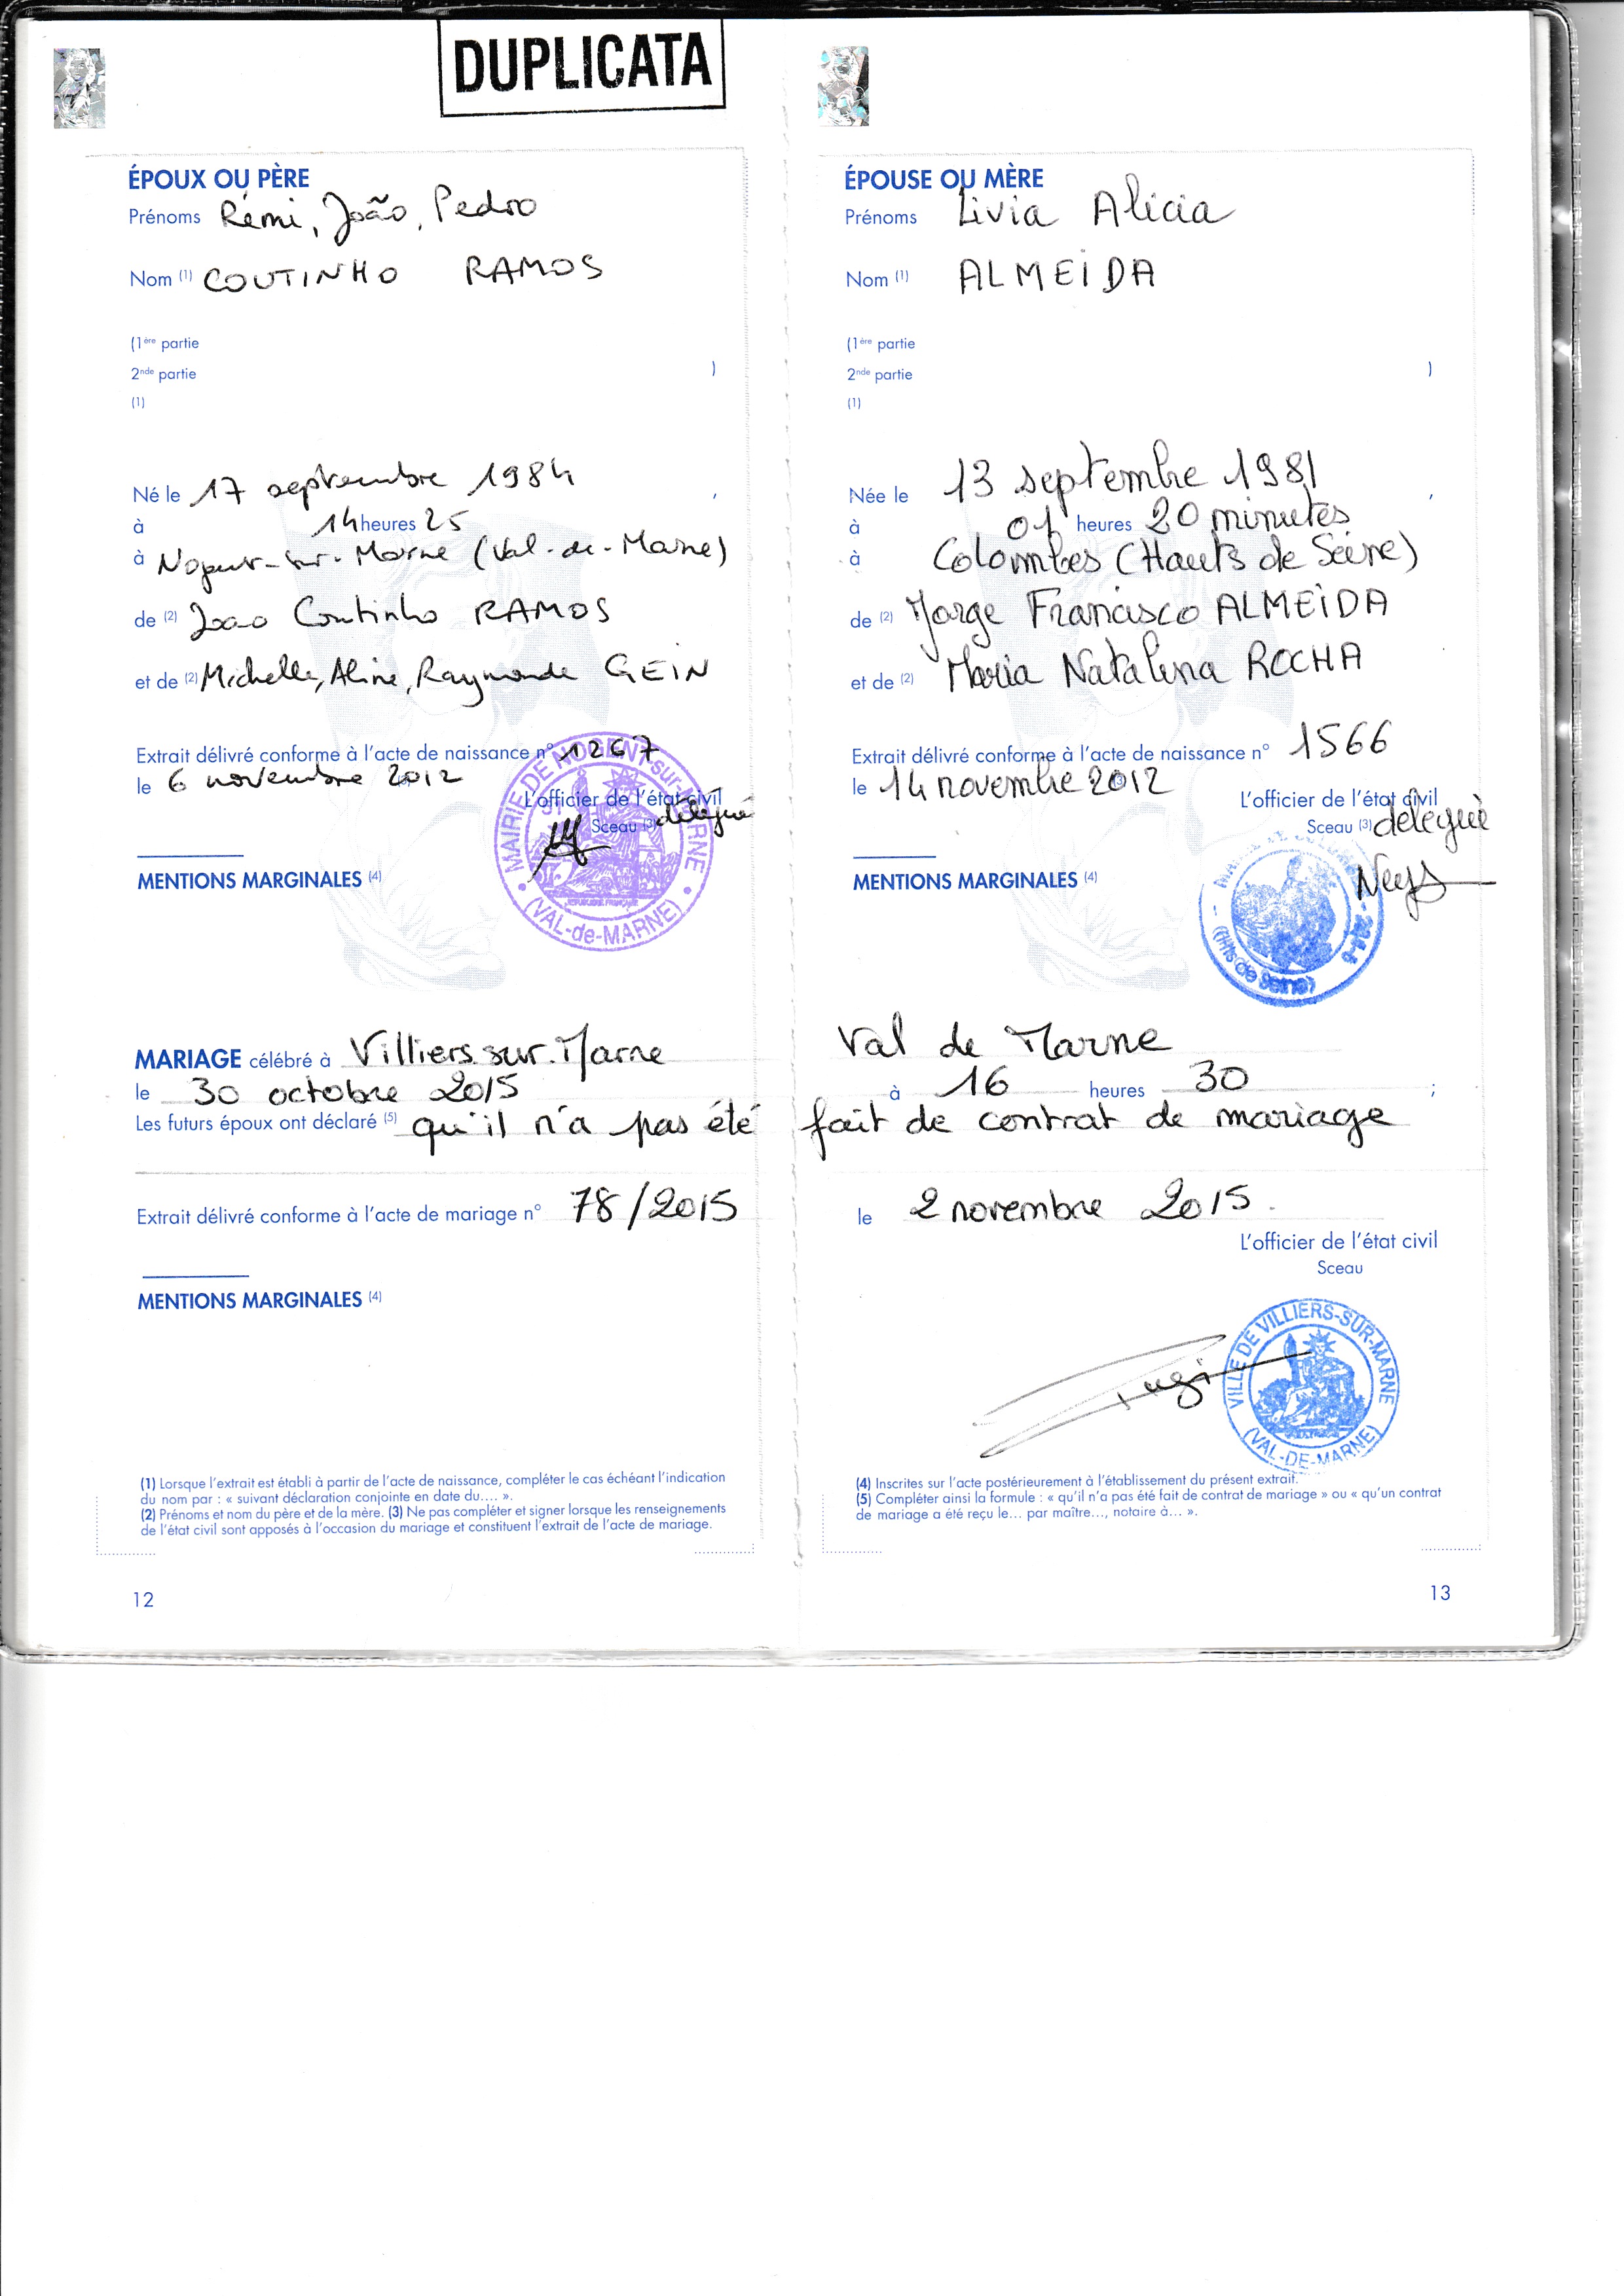 DUPLICATA
ÉPOUX OU PÈRE
Prénoms Rémi, João, Pedro
Nom (1) COUTINHO RAMOS
(1ère partie
2nde partie )
(1)
Né le 17 septembre 1984 ,
à 14 heures 25
à Nogent-sur-Marne (Val-de-Marne)
de (2) Joao Coutinho RAMOS
et de (2) Michelle, Aline, Raymonde GEIN
Extrait délivré conforme à l'acte de naissance n° 1267
le 6 novembre 2012
L'officier de l'état civil
Sceau (3) délégué
MAIRIE DE NOGENT-sur-MARNE
(VAL-de-MARNE)
MENTIONS MARGINALES (4)
ÉPOUSE OU MÈRE
Prénoms Livia Alicia
Nom (1) ALMEIDA
(1ère partie
2nde partie )
(1)
Née le 13 septembre 1981 ,
à 01 heures 20 minutes
à Colombes (Hauts de Seine)
de (2) Jorge Francisco ALMEIDA
et de (2) Maria Natalina ROCHA
Extrait délivré conforme à l'acte de naissance n° 1566
le 14 novembre 2012
L'officier de l'état civil
Sceau (3) délégué
(Hts de Seine)
MENTIONS MARGINALES (4)
MARIAGE célébré à Villiers-sur-Marne Val de Marne
le 30 octobre 2015 à 16 heures 30 ;
Les futurs époux ont déclaré (5) qu'il n'a pas été fait de contrat de mariage
Extrait délivré conforme à l'acte de mariage n° 78/2015 le 2 novembre 2015.
L'officier de l'état civil
Sceau
VILLE DE VILLIERS-SUR-MARNE
(VAL-DE-MARNE)
MENTIONS MARGINALES (4)
(1) Lorsque l'extrait est établi à partir de l'acte de naissance, compléter le cas échéant l'indication
du nom par : « suivant déclaration conjointe en date du.... ».
(2) Prénoms et nom du père et de la mère. (3) Ne pas compléter et signer lorsque les renseignements
de l'état civil sont apposés à l'occasion du mariage et constituent l'extrait de l'acte de mariage.
(4) Inscrites sur l'acte postérieurement à l'établissement du présent extrait.
(5) Compléter ainsi la formule : « qu'il n'a pas été fait de contrat de mariage » ou « qu'un contrat
de mariage a été reçu le... par maître..., notaire à... ».
12
13